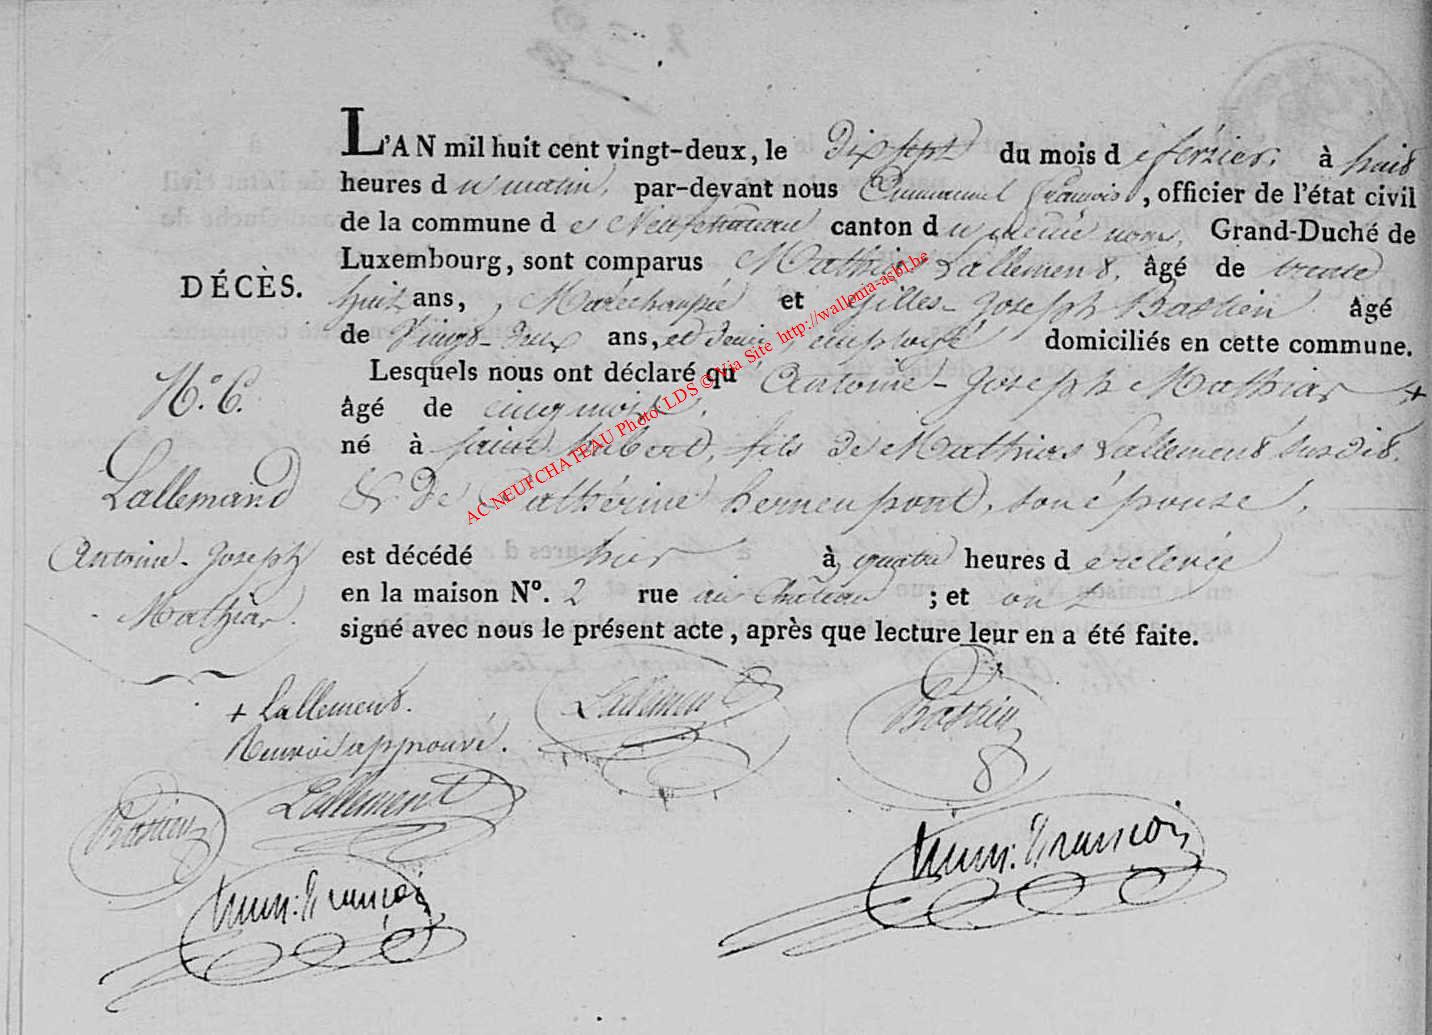 L'AN mil huit cent vingt-deux, le Dix sept du mois de février, à huit
heures du matin, par-devant nous Emmanuel François, officier de l'état civil
de la commune de Neufchateau canton du même nom, Grand-Duché de
Luxembourg, sont comparus Mathias Lallement, âgé de trente
DÉCÈS.
huit ans, Maréchaussée et Gilles-Joseph Bastien âgé
de Vingt-deux ans, et demi, employé domiciliés en cette commune.
Lesquels nous ont déclaré qu'Antoine-Joseph Mathias +
N.º 6.
âgé de cinq mois,
né à Saint hubert, fils de Mathias Lallement susdit.
Lallemand
& de Cathérine herneupont, son épouse,
Antoine-Joseph
est décédé hier à quatre heures de relevée
en la maison Nº. 2 rue du Château ; et ont
Mathias.
signé avec nous le présent acte, après que lecture leur en a été faite.
+ Lallement.
Renvoi approuvé.
Lallement
Bastien
Bastien
Lallement
Emm: François
Emm: François
AC NEUFCHATEAU Photo: LDS © Via Site http://wallonia-asbl.be